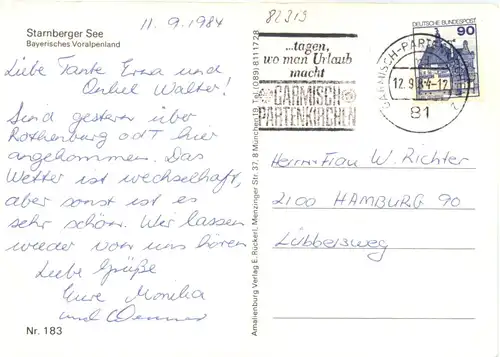 11.9.1984
82319
Starnberger See
Bayerisches Voralpenland
Liebe Tante Erna und
Onkel Walter!
Sind gestern über
Rothenburg odT hier
angekommen. Das
Wetter ist wechselhaft,
aber sonst ist es
sehr schön. Wir lassen
wieder von uns hören
Liebe Grüße
Eure Monika
und Werner
Nr. 183
Amalienburg Verlag E. Rückerl, Menzinger Str. 37, 8 München 19, Tel. (089) 8111728
...tagen,
wo man Urlaub
macht
GARMISCH
PARTENKIRCHEN
GARMISCH-PARTEN
12.9.84-12
81
DEUTSCHE BUNDESPOST
90
Herrn+Frau W. Richter
2100 HAMBURG 90
Lübbersweg